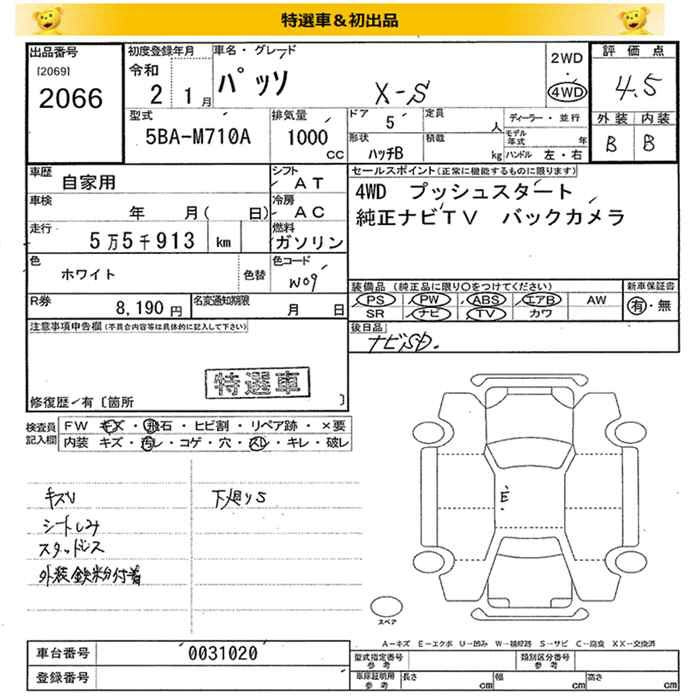 特選車＆初出品
出品番号
[2069]
2066
初度登録年月
令和
2 1月
車名・グレード
パッソ X-S
2WD
4WD
評価点
4.5
外装 内装
B B
型式
5BA-M710A
排気量
1000 CC
ドア 5
定員 人
形状 ハッチB
積載 kg
ディーラー・並行
モデル年式 年
ハンドル 左・右
車歴 自家用
シフト AT
車検 年 月( 日)
冷房 AC
走行 5万5千913 km
燃料 ガソリン
色 ホワイト 色替
色コード W09
R券 8,190円
名変通知期限 月 日
セールスポイント(正常に機能するものに限ります)
4WD プッシュスタート
純正ナビTV バックカメラ
装備品(純正品に限り○をつけてください)
新車保証書
PS PW ABS エアB AW
SR ナビ TV カワ
有・無
後日品
ナビSD.
注意事項申告欄(不具合内容等は具体的に記入して下さい)
特選車
修復歴/有〔箇所 〕
検査員記入欄
FW キズ・飛石・ヒビ割・リペア跡・×要
内装 キズ・汚レ・コゲ・穴・スレ・キレ・破レ
キズU 下廻りS
シートしみ
スタッドレス
外装鉄粉付着
E
スペア
A-キズ E-エクボ U-凹み W-補修跡 S-サビ C-腐食 XX-交換済
車台番号 0031020
登録番号
型式指定番号 参考
類別区分番号 参考
車庫証明用 参考
長さ cm 幅 cm 高さ cm